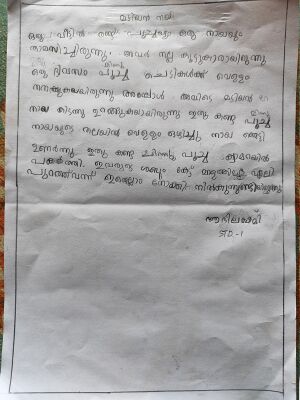 മടിയൻ നായ
ഒരു വീട്ടിൽ രണ്ട് പൂച്ചയും ഒരു നായയും
താമസിച്ചിരുന്നു. അവർ നല്ല കൂട്ടുകാരായിരുന്നു
ഒരു ദിവസം ചിന്നു പൂച്ച ചെടികൾക്ക് വെള്ളം
നനക്കുകയായിരുന്നു അപ്പോൾ അവിടെ മടിയൻ
നായ കിടന്നു ഉറങ്ങുകയായിരുന്നു ഇതു കണ്ട ചിന്നു പൂച്ച
നായയുടെ തലയിൽ വെള്ളം ഒഴിച്ചു നായ ഞെട്ടി
ഉണർന്നു. ഇതു കണ്ട ചിന്നു പൂച്ച
പകർത്തി. ഇവരുടെ ശബ്ദം കേട്ട് എലി
പുറത്ത് വന്ന് ഇതെല്ലാം നോക്കി നിൽക്കുന്നുണ്ടായിരുന്നു
STD-1